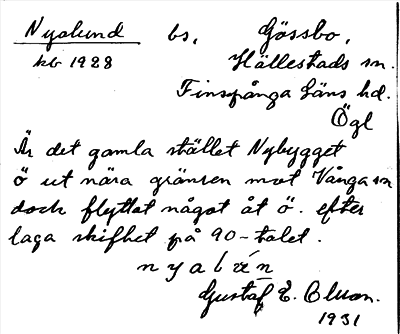 Nyalund bs, Gössbo,
kb 1928 Hällestads sn.
Finspånga Läns hd.
Ögl
Är det gamla stället Nybygget
ö ut nära gränsen mot Vånga sn
dock flyttat något åt ö. efter
laga skifhet på 90-talet.
nyalún
Gustaf E. Olsson.
1931